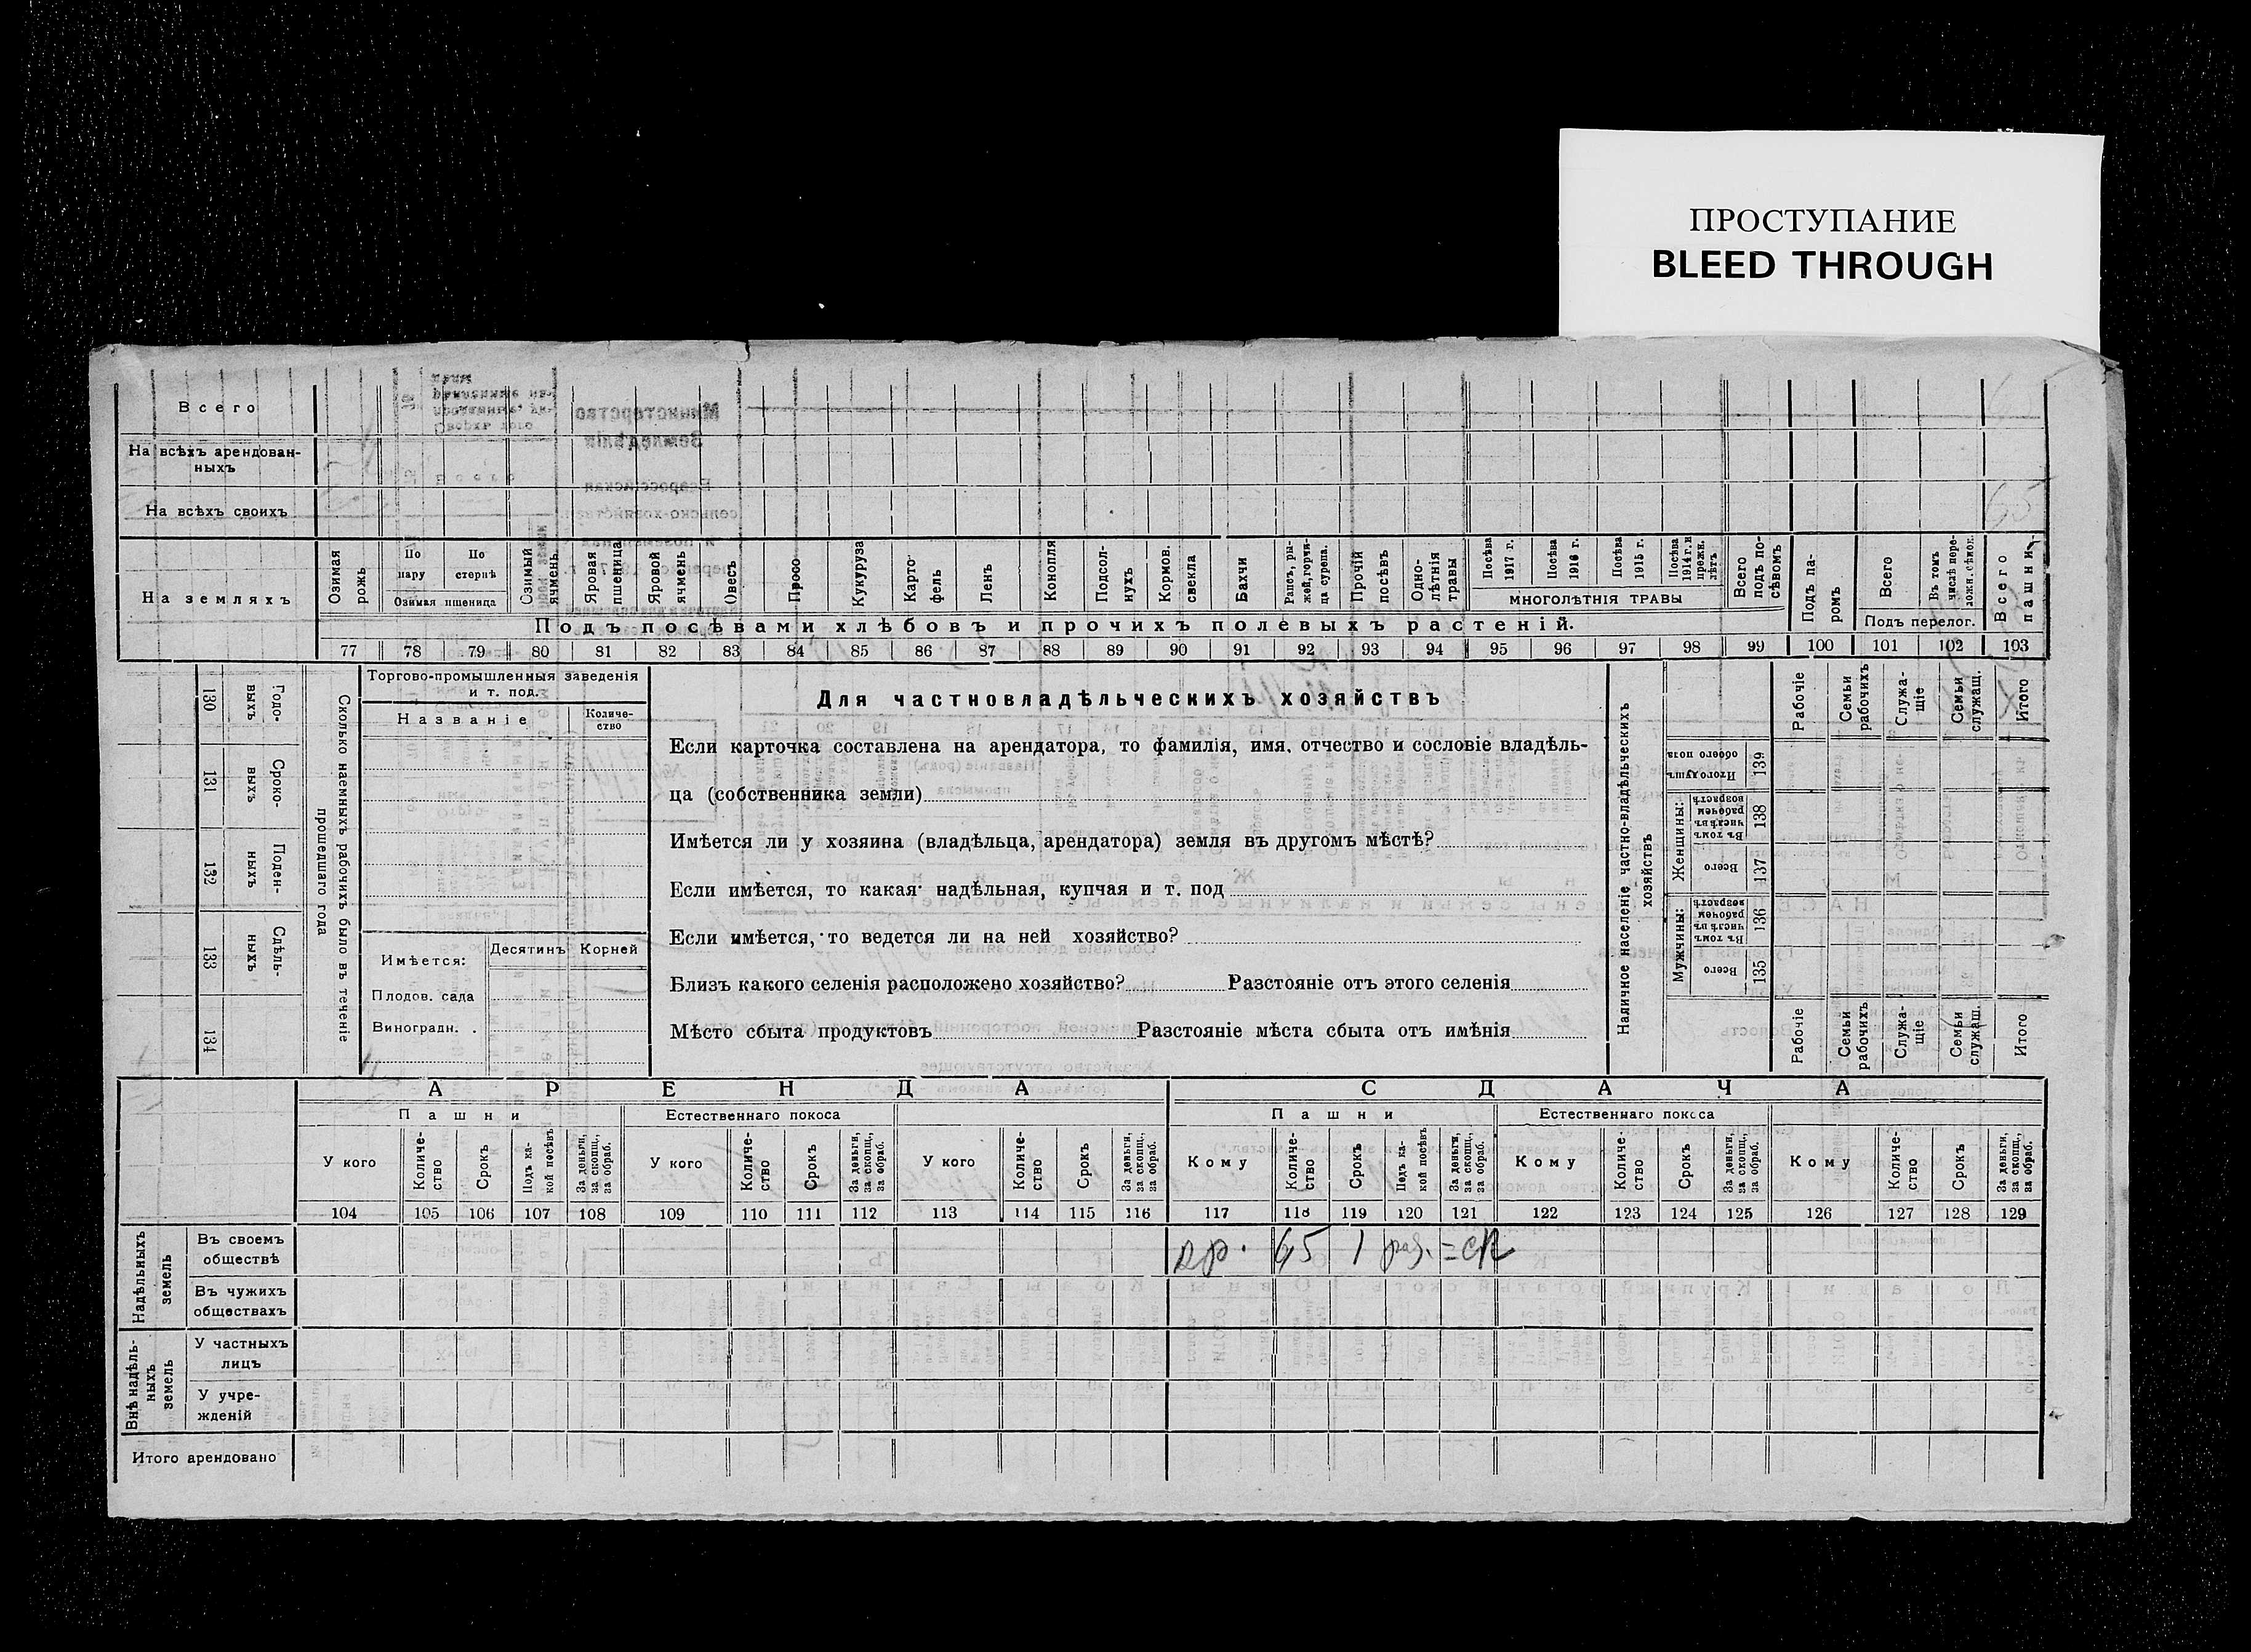 ПРОСТУПАНИЕ
BLEED THROUGH
Всего
На всѣхъ арендован-
ныхъ
На всѣхъ своихъ
На земляхъ
Озимая рожь
По пару
По стернѣ
Озимая пшеница
Озимый ячмень
Яровая пшеница
Яровой ячмень
Овесъ
Просо
Кукуруза
Карто-
фель
Ленъ
Конопля
Подсол-
нухъ
Кормов.
свекла
Бахчи
Рапсъ, ры-
жей, горчи-
ца сурепа.
Прочій посѣвъ
Одно-
лѣтнія травы
Посѣва 1917 г.
Посѣва 1916 г.
Посѣва 1915 г.
Посѣва 1914 г. и прежн. лѣтъ
МНОГОЛѢТНІЯ ТРАВЫ
Всего подъ по-
сѣвомъ
Подъ па-
ромъ
Всего
Въ томъ числѣ пере-
ложн. сѣнок.
Подъ перелог.
Всего пашни
65
Подъ посѣвами хлѣбовъ и прочихъ полевыхъ растеній.
77 78 79 80 81 82 83 84 85 86 87 88 89 90 91 92 93 94 95 96 97 98 99 100 101 102 103
130 Годо-
выхъ
131 Сроко-
выхъ
132 Поден-
ныхъ
133 Сдѣль-
ныхъ
134
Сколько наемныхъ рабочихъ было въ теченіе
прошедшаго года
Торгово-промышленныя заведенія
и т. под.
Названіе
Количе-
ство
Имѣется:
Десятинъ
Корней
Плодов. сада
Виноградн. .
Для частновладѣльческихъ хозяйствъ
Если карточка составлена на арендатора, то фамилія, имя, отчество и сословіе владѣль-
ца (собственника земли)
Имѣется ли у хозяина (владѣльца, арендатора) земля въ другомъ мѣстѣ?
Если имѣется, то какая: надѣльная, купчая и т. под
Если имѣется, то ведется ли на ней хозяйство?
Близъ какого селенія расположено хозяйство? Разстояніе отъ этого селенія
Мѣсто сбыта продуктовъ Разстояніе мѣста сбыта отъ имѣнія
Наличное населеніе частно-владѣльческихъ
хозяйствъ
Рабочіе
Семьи рабочихъ
Служа-
щіе
Семьи служащ.
Итого
Итого душъ обоего пола 139
Женщины:
Въ томъ числѣ въ рабочем возрастѣ 138
Всего 137
Мужчины:
Въ томъ числѣ въ рабочем возрастѣ 136
Всего 135
Рабочіе
Семьи рабочихъ
Служа-
щіе
Семьи служащ.
Итого
АРЕНДА
СДАЧА
Пашни
Естественнаго покоса
Пашни
Естественнаго покоса
У кого
Количе-
ство
Срокъ
Подъ ка-
кой посѣвъ
За деньги,
за скопщ.,
за обраб.
У кого
Количе-
ство
Срокъ
За деньги,
за скопщ.,
за обраб.
У кого
Количе-
ство
Срокъ
За деньги,
за скопщ.,
за обраб.
Кому
Количе-
ство
Срокъ
Подъ ка-
кой посѣвъ
За деньги,
за скопщ.,
за обраб.
Кому
Количе-
ство
Срокъ
За деньги,
за скопщ.,
за обраб.
Кому
Количе-
ство
Срокъ
За деньги,
за скопщ.,
за обраб.
104 105 106 107 108 109 110 111 112 113 114 115 116 117 118 119 120 121 122 123 124 125 126 127 128 129
Надѣльныхъ
земель
Въ своемъ
обществѣ
65 1
Въ чужихъ
обществахъ
Внѣ надѣль-
ныхъ
земель
У частныхъ
лицъ
У учре-
жденій
Итого арендовано